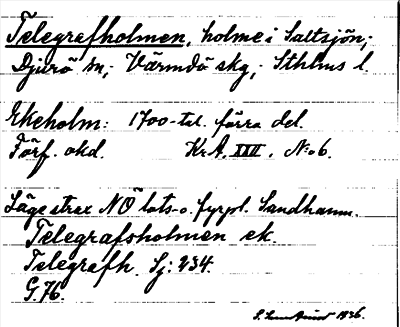 Telegrafholmen, holme i Saltsjön,
Djurö sn, Värmdö skg, Sthlms l.
Ekeholm: 1700-tal. förra del.
Förf. okd. Kr.A. XXII, N:o 6.
Läge strax NO lots- o. fyrpl. Sandhamn.
Telegrafsholmen ek.
Telegrafh. Sj: 234.
G. 76.
1936.